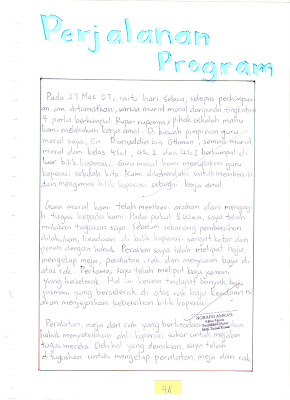 Perjalanan
Program
Pada 27 Mac 07, iaitu hari Selasa, selepas perhimpun
an am ditamatkan, semua murid moral daripada tingkatan
4 perlu berkumpul. Rupa-rupanya, pihak sekolah mahu
kami melakukan kerja amal. Di bawah pimpinan guru
moral saya, En. Bin Othman, semua murid
moral dari kelas 4Sc1, 4Sc2 dan 4Sc3 berkumpul di
luar bilik koperasi. Guru moral kami merupakan guru
koperasi sekolah kita. Kami dikehendaki untuk membersih
dan mengemas bilik koperasi sebagai kerja amal.
Guru moral kami telah memberi arahan dan mengagi
h tugas kepada kami. Pada pukul 8.00am, saya telah
mulakan tugasan saya. Sebelum sebarang pembersihan
dilakukan, keadaan di bilik koperasi sangat kotor dan
penuh dengan habuk. Peranan saya ialah melipat baju,
mengelap meja, peralatan, rak dan menyusun baju di
atas rak. Pertama, saya telah melipat baju jasmani
yang berselerak. Hal ini kerana terdapat banyak baju
jasmani yang berselerak di atas rak baju. Keadaan ni
akan menjejaskan kebersihan bilik koperasi.
Peralatan, meja dan rak yang
habuk menyebabkan ahli koperasi sukar untuk menjalan
tugas mereka. Oleh hal yang demikian, saya telah
ditugaskan untuk mengelap peralatan, meja dan rak
48